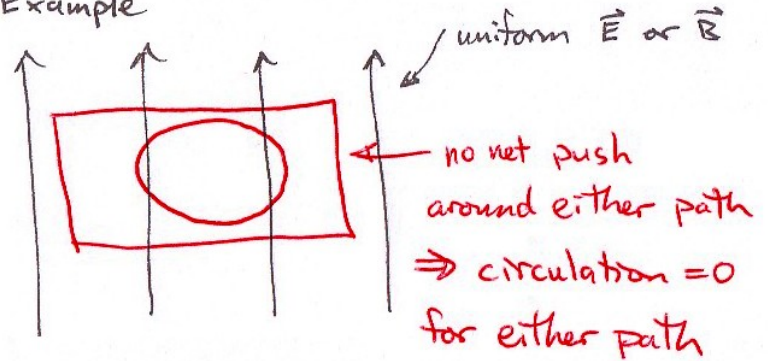 Example
uniform E⃗ or B⃗
no net push
around either path
⇒ circulation = 0
for either path